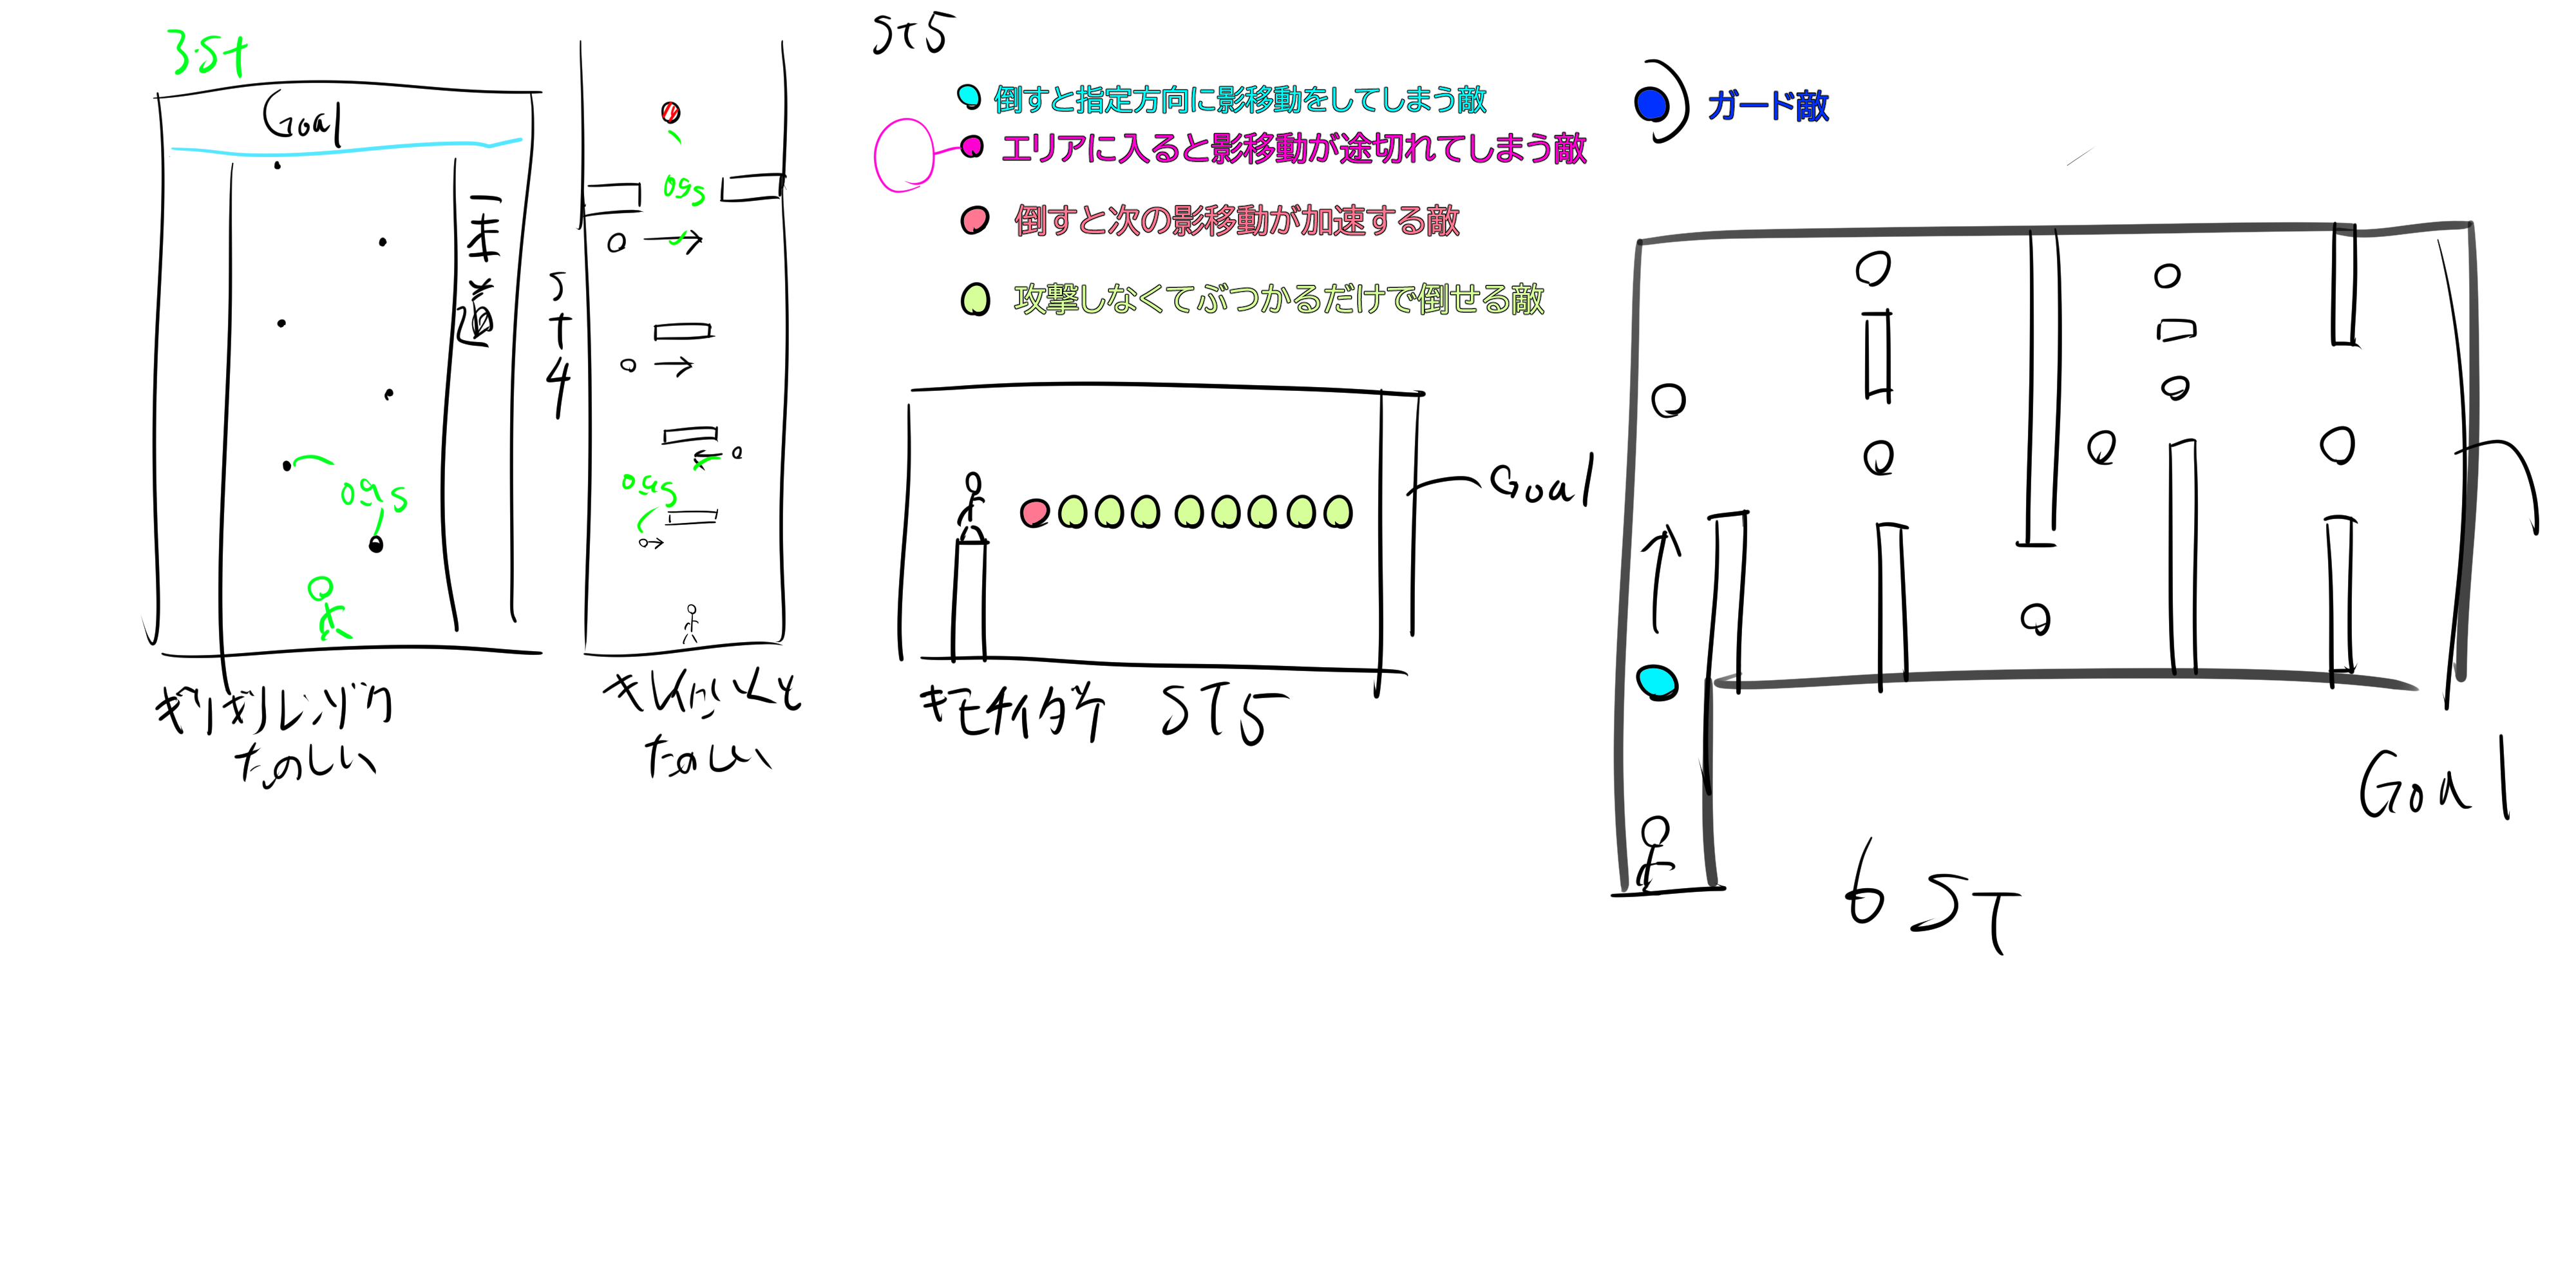 3.St
Goal
一本道
ギリギリレンゾク
たのしい
ST4
たのしい
ST5
倒すと指定方向に影移動をしてしまう敵
エリアに入ると影移動が途切れてしまう敵
倒すと次の影移動が加速する敵
攻撃しなくてぶつかるだけで倒せる敵
Goal
キモチイダケ ST5
ガード敵
Goal
6 ST